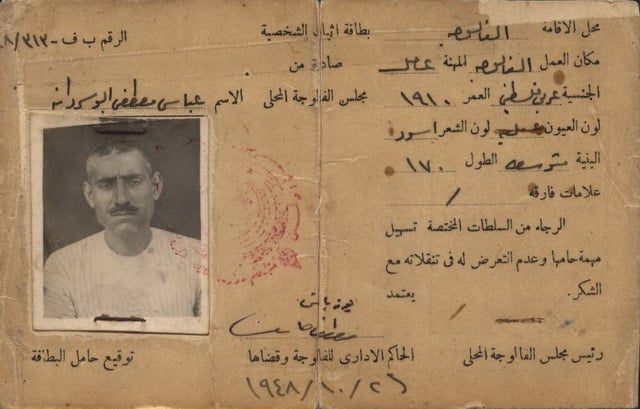 محل الاقامة الفالوجه
مكان العمل الفالوجه المهنة عامل
الجنسية عربي فلسطيني العمر ١٩١٠
لون العيون عسليه لون الشعر اسود
البنية متوسطه الطول ١٧٠
علامات فارقه /
الرجاء من السلطات المختصة تسهيل
مهمة حامها وعدم التعرض له فى تنقلاته مع
الشكر. يعتمد
رئيس مجلس الفالوجة المحلى
بطاقة اثبات الشخصية الرقم ب ف - ٨/٣١٣
صادرة من
مجلس الفالوجة المحلى الاسم عباس مصطفى ابو
يوزباشى
الحاكم الادارى للفالوجة وقضاها توقيع حامل البطاقة
١٩٤٨/١٠/